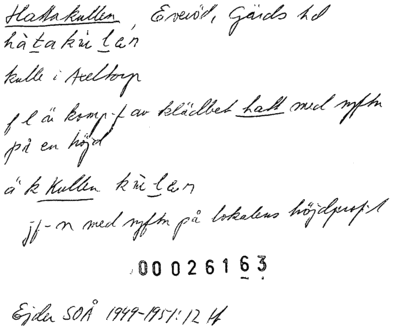 Hattakullen, Everöd, Gärds hd
hàtakùlan
kulle i Axeltorp
f l är komp-f av klädbet hatt med syftn
på en höjd
ä k Kullen kùlan
jf-n med syftn på lokalens höjdprofil
00026163
Ejder SOÅ 1949-1951:12 ff